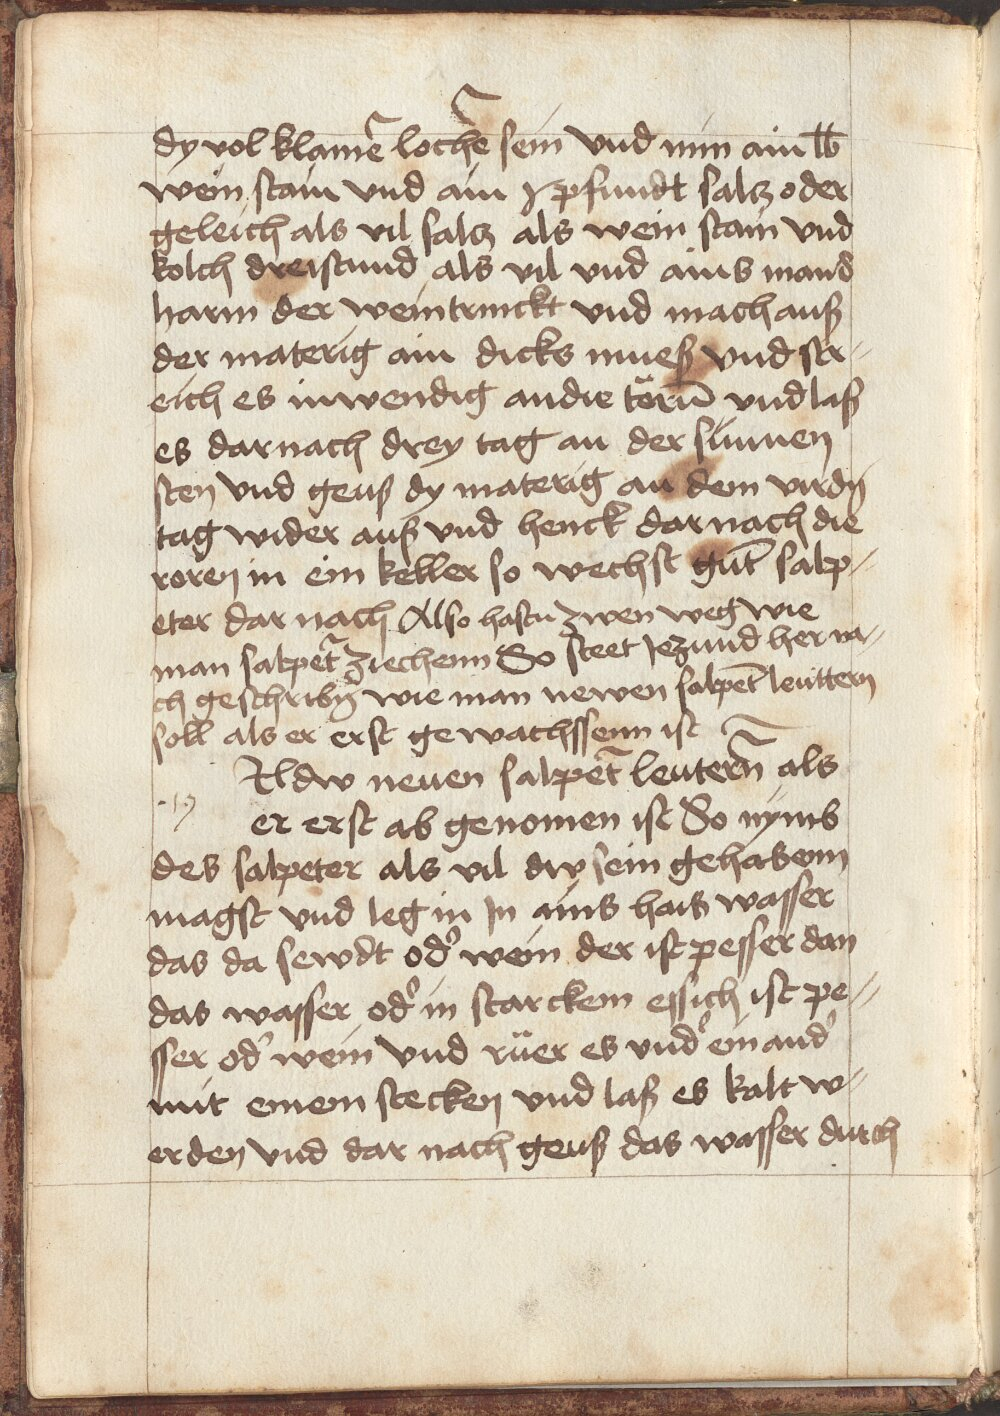 dy vol klainer locher sein vnd nim ain lb
wein stain vnd ain pfundt saltz oder
geleich als vil saltz als wein stain vnd
kolch dreistund als vil vnd ains mands
harm der wein trinckt vnd mach auß
der materig ain dicks mueß vnd str-
eich es inwendig an die rörn̄ vnd laß
es dar nach drey tag an der sunnen
sten vnd geuß dy materig an dem virdn̄
tag wider auß vnd henck dar nach die
roren in ein keller so wechst gut̄ salp-
eter dar nach Also hastu zwen weg wie
man salpet̄ ziechenn So steet Jezund her na-
ch geschribn̄ wie man newen salpet̄ leuttern
soll als er erst gewachssenn ist
Wildw neuen salpet̄ leutern̄ als
er erst ab genomen ist So nyms
des salpeter als vil dw sein gehabenn
magst vnd leg in Jn ains hais wasser
das da sewdt od' wein der ist pesser dan
das wasser od' in starckem essich ist pe-
sser od' wein vnd rüer es vnd' ein and'
mit einem stecken vnd laß es kalt w-
erden vnd dar nach geuß das wasser durch